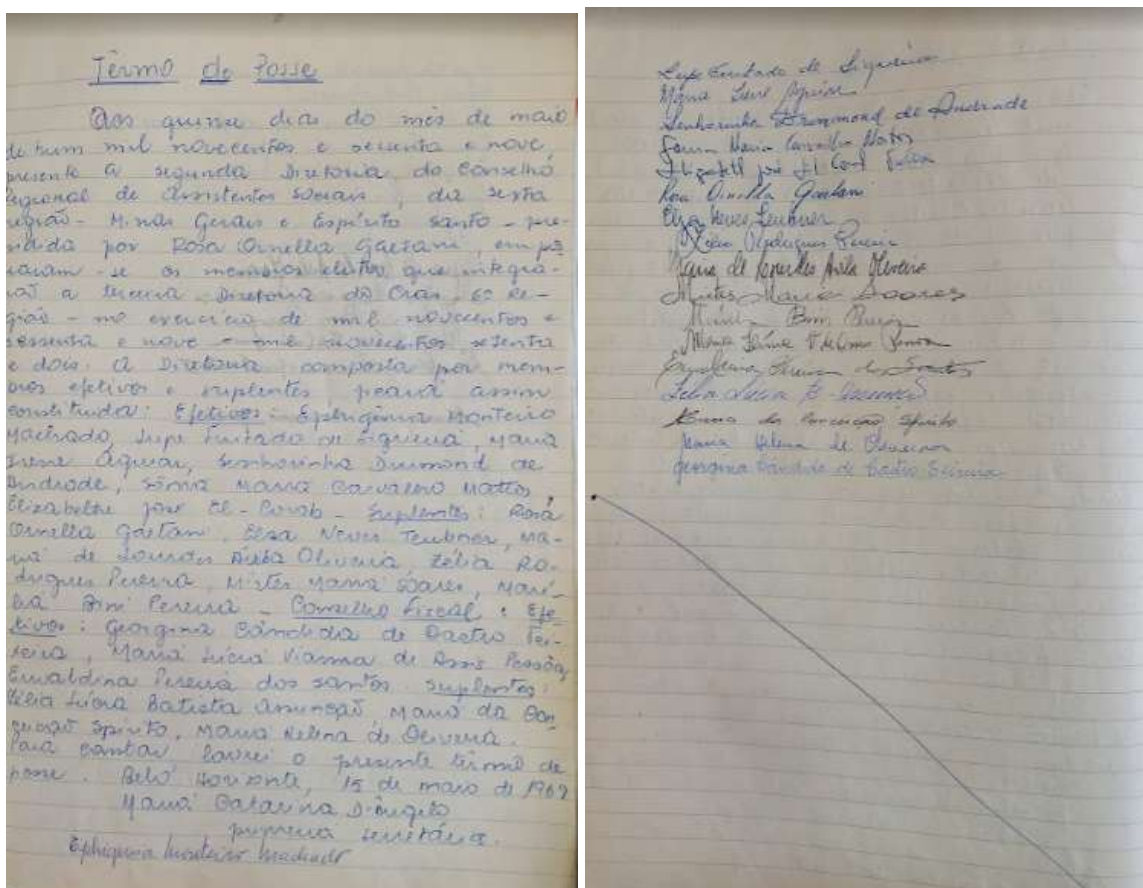 Têrmo de Posse
Aos quinze dias do mês de maio
de hum mil novecentos e sessenta e nove,
presente a segunda Diretoria do Conselho
Regional de Assistentes Sociais, da sexta
região - Minas Gerais e Espírito Santo - pre-
sidida por Rosa Ornella Gaetani, empos
saram-se os membros eleitos que integra-
rão a terceira Diretoria do Cras, 6ª Re-
gião - no exercício de mil novecentos e
sessenta e nove e mil novecentos setenta
e dois. A Diretoria composta por mem-
bros efetivos e suplentes ficará assim
constituída: Efetivos: Ephigênia Monteiro
Machado, Furtado de Siqueira, Maria
Irene Aguiar, Senhorinha Drumond de
Andrade, Sônia Maria Carvalho Mattos,
Elizabethe José El-Corab - Suplentes: Rosa
Ornella Gaetani, Elza Neves Teubner, Ma-
ria de Lourdes Ávila Oliveira, Zélia Ro-
drigues Pereira, Mirtes Maria Soares, Marí-
lia Bini Pereira - Conselho Fiscal: Efe-
tivos: Georgina Cândida de Castro Tei-
xeira, Maria Lúcia Vianna de Assis Pessôa,
Euvaldina Pereira dos Santos. Suplentes:
Célia Lúcia Batista Assunção, Maria da Con-
ceição Spirito, Maria Helena de Oliveira.
Para constar lavrei o presente têrmo de
posse. Belo Horizonte, 15 de maio de 1969
Maria Catarina D'Angelo
primeira secretária.
Ephigenia Monteiro Machado
Furtado de Siqueira
Maria Irene Aguiar
Senhorinha Drummond de Andrade
Sonia Maria Carvalho Mattos
Elizabeth José El Corab
Rosa Ornella Gaetani
Elza Neves Teubner
Zélia Rodrigues Pereira
Maria de Lourdes Avila Oliveira
Mirtes Maria Soares
Bini Pereira
Maria Lúcia
Pereira dos Santos
Célia Lucia B. Assunção
Maria da Conceição Spirito
Maria Helena de Oliveira
Georgina Cândida de Castro Teixeira